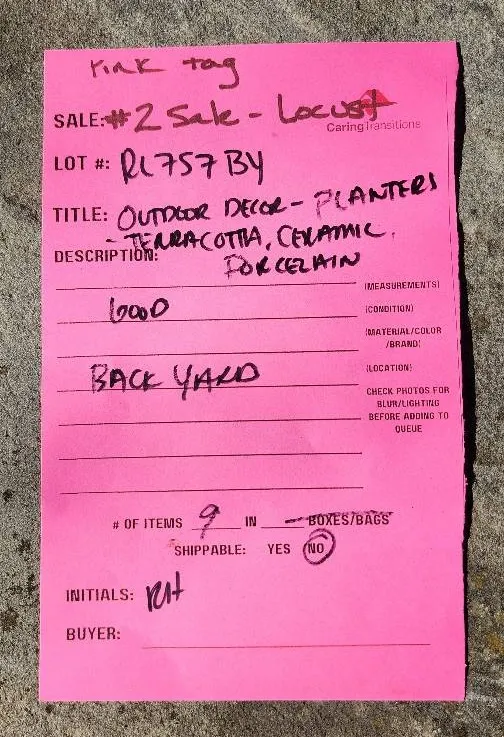 Pink tag
SALE: #2 Sale - Locust
CaringTransitions
LOT #: RL757BY
TITLE: OUTDOOR DECOR - PLANTERS
- TERRACOTTA, CERAMIC,
DESCRIPTION: PORCELAIN
(MEASUREMENTS)
GOOD (CONDITION)
(MATERIAL/COLOR
/BRAND)
BACK YARD (LOCATION)
CHECK PHOTOS FOR
BLUR/LIGHTING
BEFORE ADDING TO
QUEUE
# OF ITEMS 9 IN BOXES/BAGS
SHIPPABLE: YES NO
INITIALS: RH
BUYER: